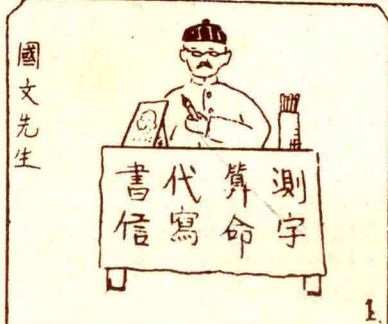 國文先生
測字
算命
代寫
書信